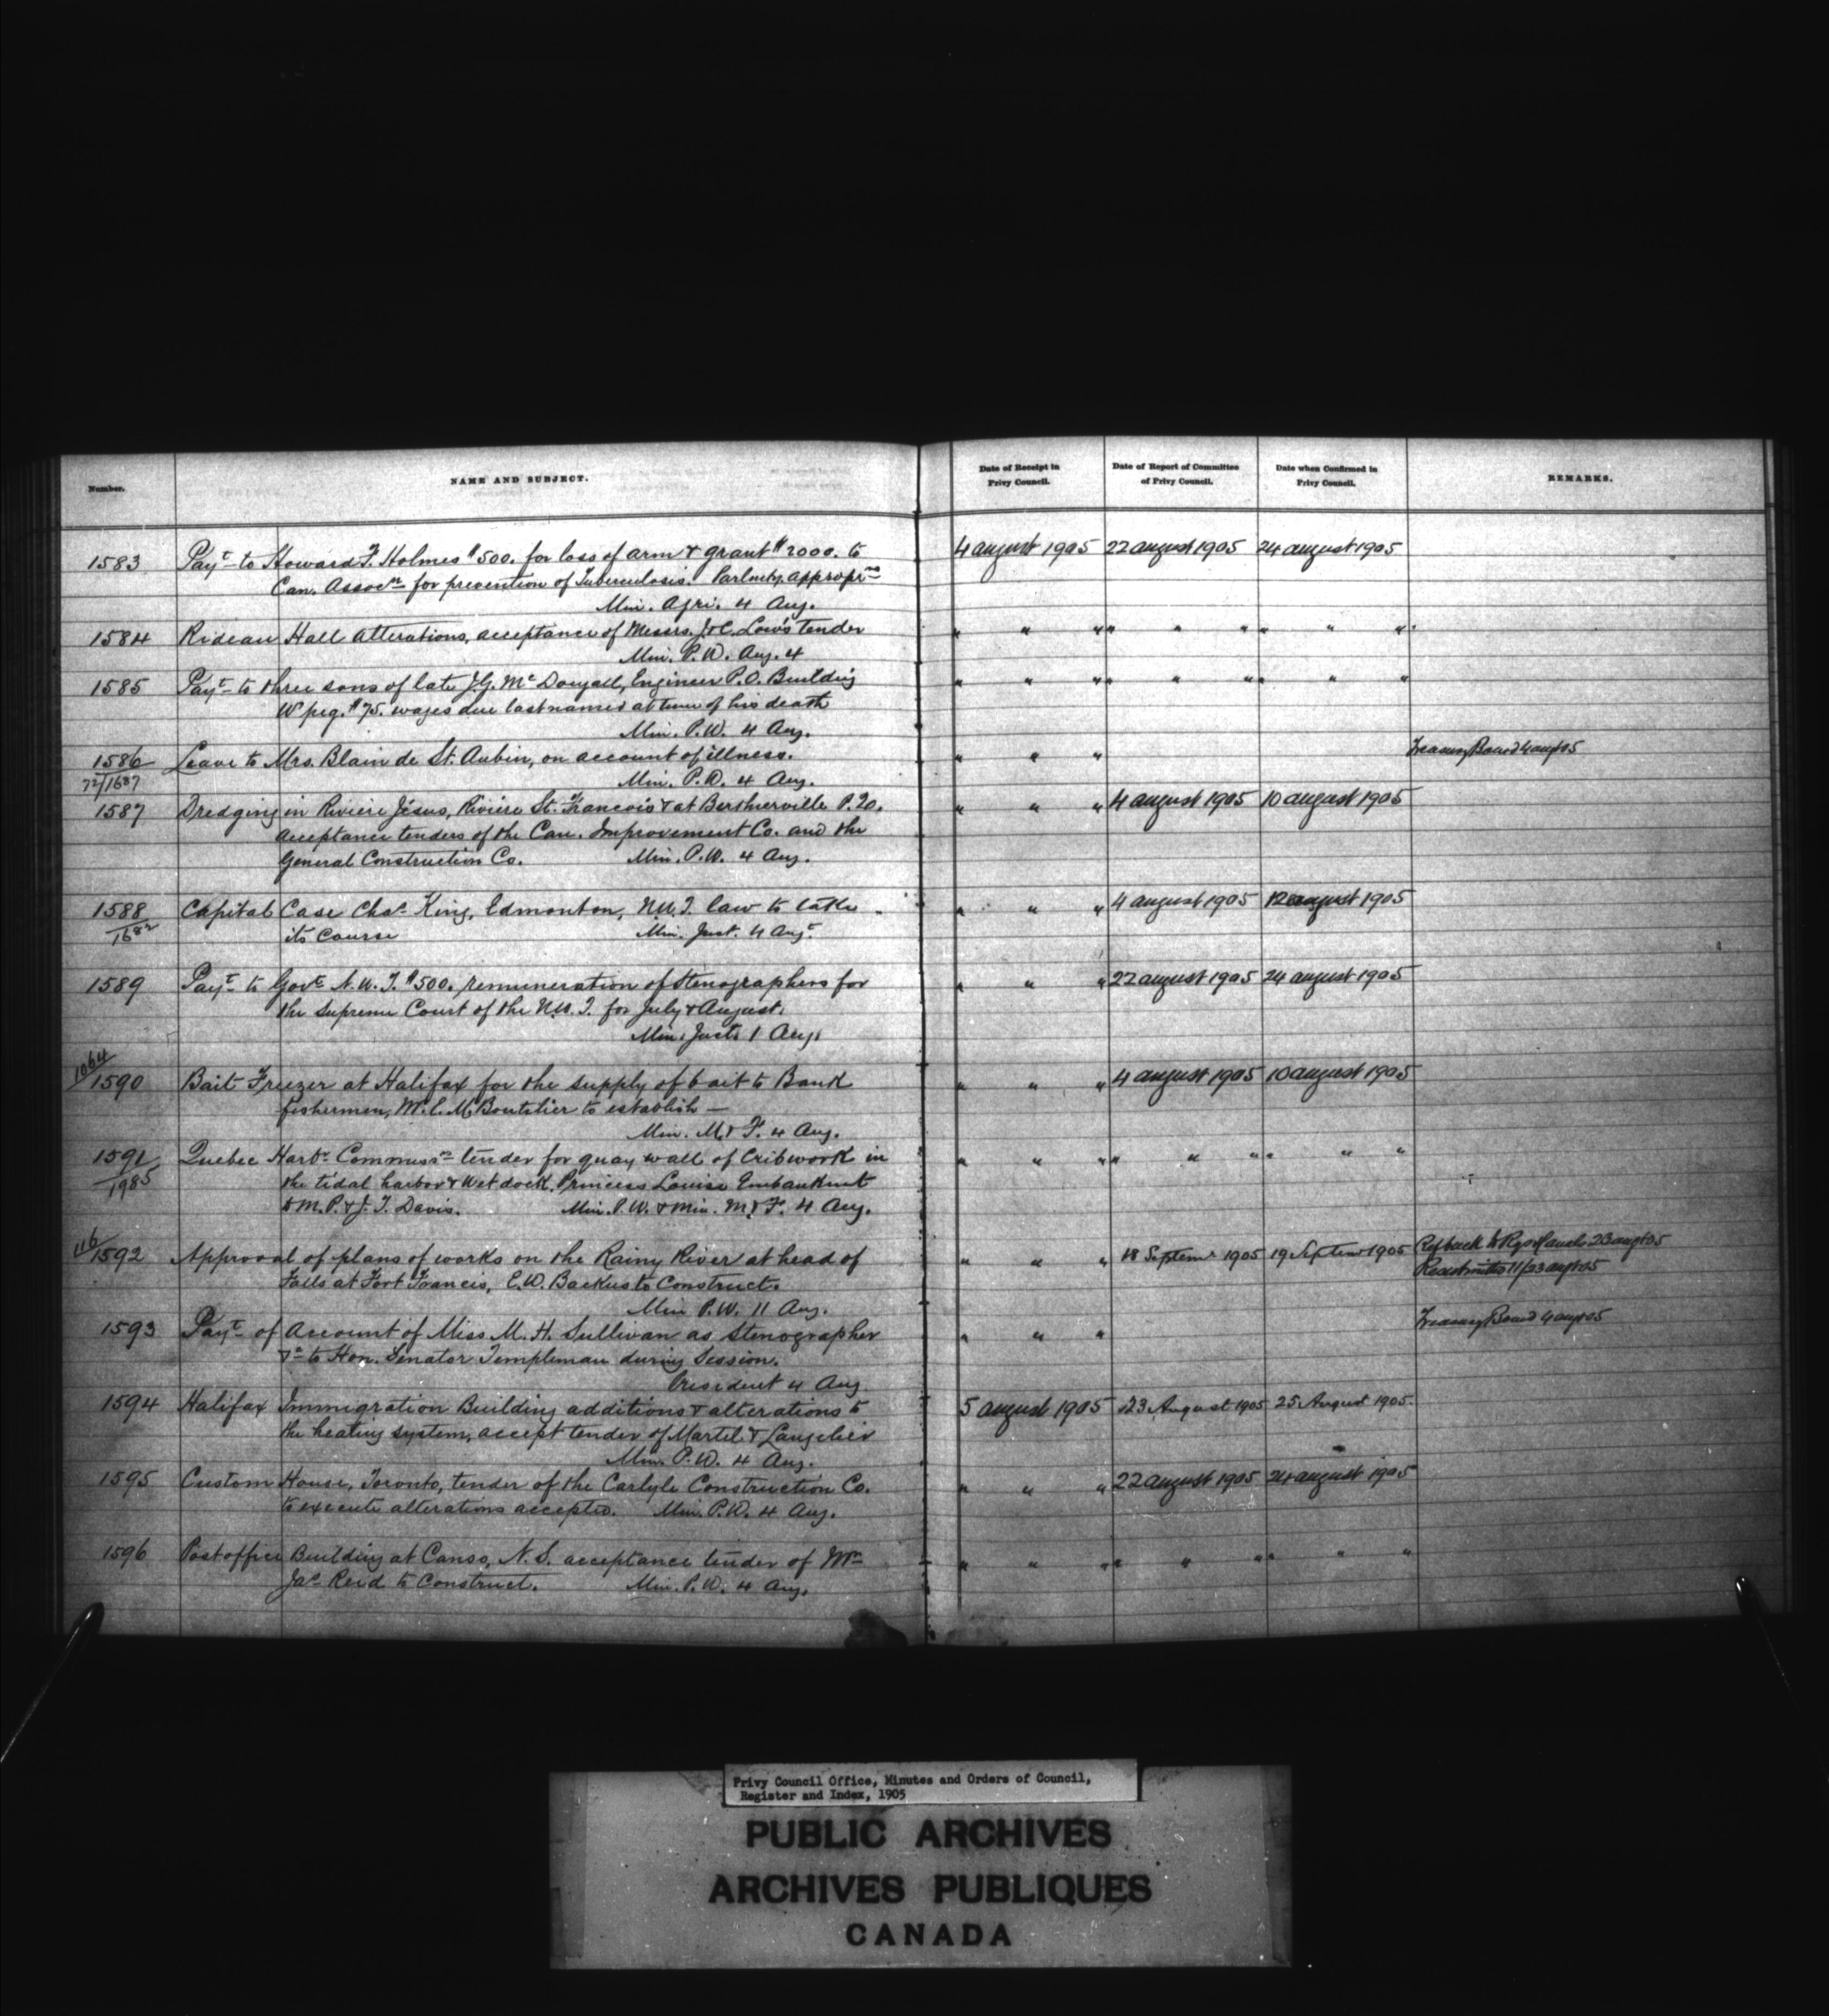 Number.
NAME AND SUBJECT.
Date of Receipt in Privy Council.
Date of Report of Committee of Privy Council.
Date when Confirmed in Privy Council.
REMARKS.
1583 Payt to Howard F. Holmes $500. for loss of arm & grant $2000. to 4 august 1905 22 august 1905 24 august 1905
Can. Assocn for prevention of Tuberculosis. Parlmty. approprns
Min. Agri. 4 Aug.
1584 Rideau Hall alterations, acceptance of Messrs. J & C. Low's tender " " " " " " " " "
Min. P.W. Aug. 4
1585 Payt to three sons of late J.G. McDougall, Engineer P.O. Building " " " " " " " " "
W'peg. $75. wages due last named at time of his death
Min. P.W. 4 Aug.
1586 Leave to Mrs. Blain de St. Aubin, on account of illness. " " " Treasury Board 4 augt 05
72/1687 Min. P.W. 4 Aug.
1587 Dredging in Rivière Jésus, Rivière St. François & at Berthierville P. 2o. " " " 4 august 1905 10 august 1905
acceptance tenders of the Can. Improvement Co. and the
General Construction Co. Min. P.W. 4 Aug.
1588 Capital Case Chas. King, Edmonton, N.W.T. law to take " " " 4 august 1905 12 august 1905
1682 its course Min. Just. 4 Augt.
1589 Payt to Govt N.W.T. $500. remuneration of Stenographers for " " " 22 august 1905 24 august 1905
the Supreme Court of the N.W.T. for July & August.
Min. Just. 1 Aug.
1064
1590 Bait Freezer at Halifax for the supply of bait to Bank " " " 4 august 1905 10 august 1905
fishermen, W.C.M. Boutelier to establish —
Min. M & F. 4 Aug.
1591 Quebec Harbr Commissn tender for quay wall of Cribwork in " " " " " " " " "
1985 the tidal harbor & wet dock, Princess Louise Embankmt
to M.P. & J.T. Davis. Min. P.W. & Min. M & F. 4 Aug.
116
1592 Approval of plans of works on the Rainy River at head of " " " 18 Septemr 1905 19 Septemr 1905 Ref back to Rys & Canals 23 augt 05
Falls at Fort Francis, E.W. Backus to Construct. 11/23 augt 05
Min P.W. 11 Aug.
1593 Payt of Account of Miss M.H. Sullivan as Stenographer " " " Treasury Board 4 augt 05
to Hon. Senator Templeman during Session.
President 4 Aug
1594 Halifax Immigration Building additions & alterations to 5 august 1905 23 August 1905 25 August 1905.
the heating system, accept tender of Martel & Langelier
Min. P.W. 4 Aug.
1595 Custom House, Toronto, tender of the Carlyle Construction Co. " " " 22 august 1905 24 august 1905
to execute alterations accepted. Min. P.W. 4 Aug.
1596 Post office Building at Canso, N.S. acceptance tender of Mr " " " " " " " " "
Jas Reid to Construct. Min. P.W. 4 Aug.
Privy Council Office, Minutes and Orders of Council,
Register and Index, 1905
PUBLIC ARCHIVES
ARCHIVES PUBLIQUES
CANADA